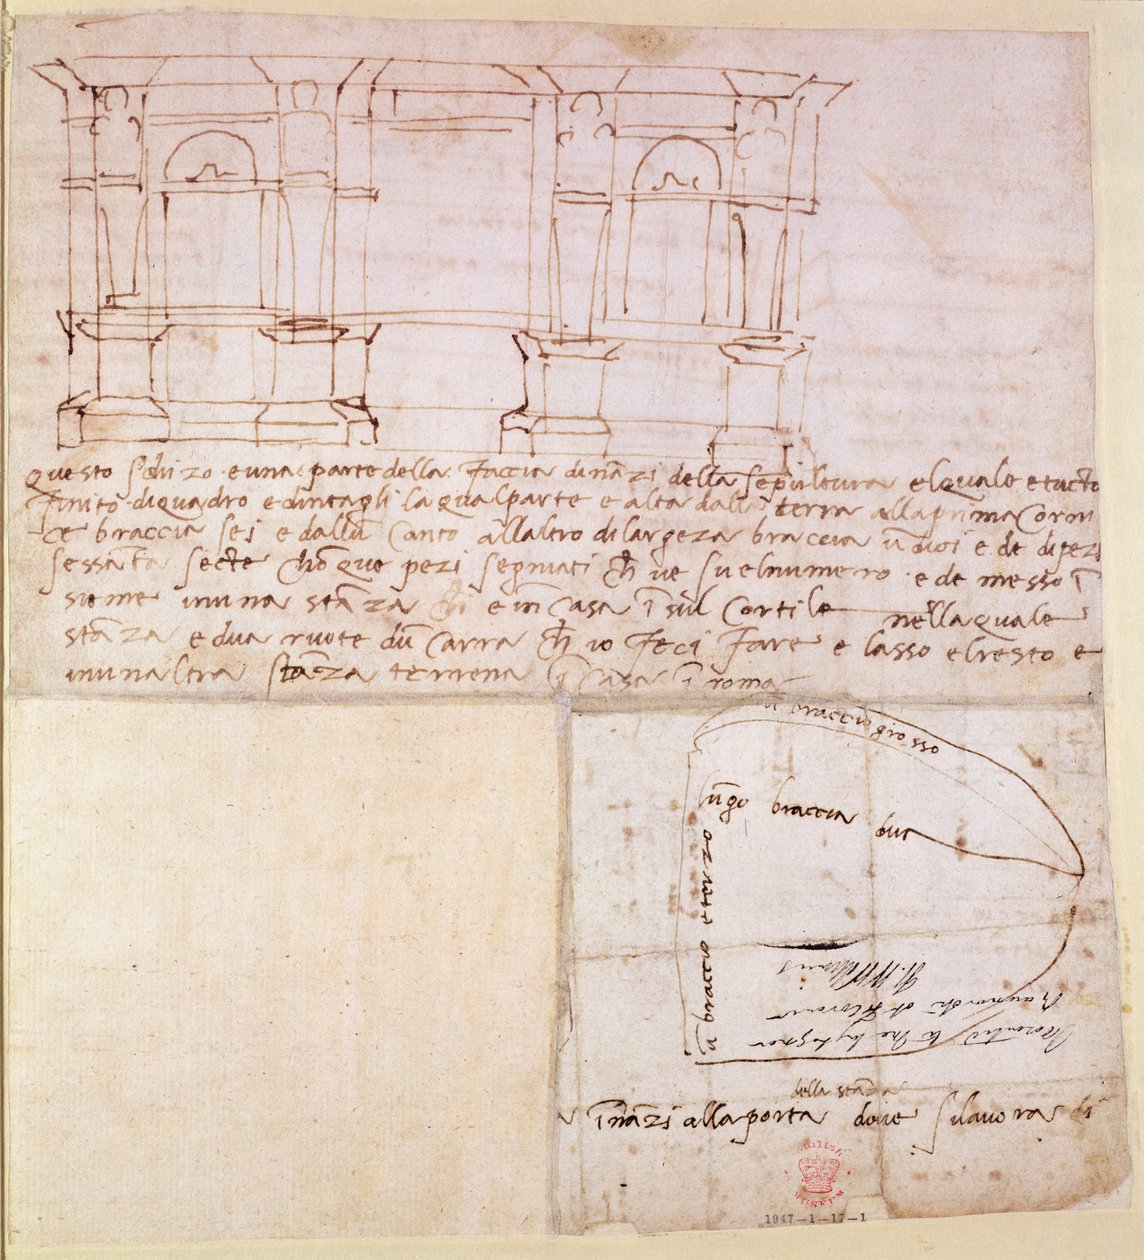 questo schizo e una parte della Faccia dinãzi della sepultura elquale e tucta
Finito di quadro e dintagli la qual parte e alta dalla terra alla prima Corni
ce braccia sei e dallũ canto allaltro di largeza braccia ũdici e de di pezi
sessãta secte
segniati ch ve su elnumero e de messo ĩ
sieme inuna stãza ch e in casa ĩ sul Cortile nella quale
stãza e dua ruote dũ carra ch io Feci Fare e lasso elresto e
inunaltra stãza terrena ĩ casa ĩ roma
ũ braccio grosso
lũgo braccia dua
ũ braccio e terzo
H. Williams
della stãza
ĩnãzi alla porta dove si lavora di
BRITISH MUSEUM
1947-1-17-1